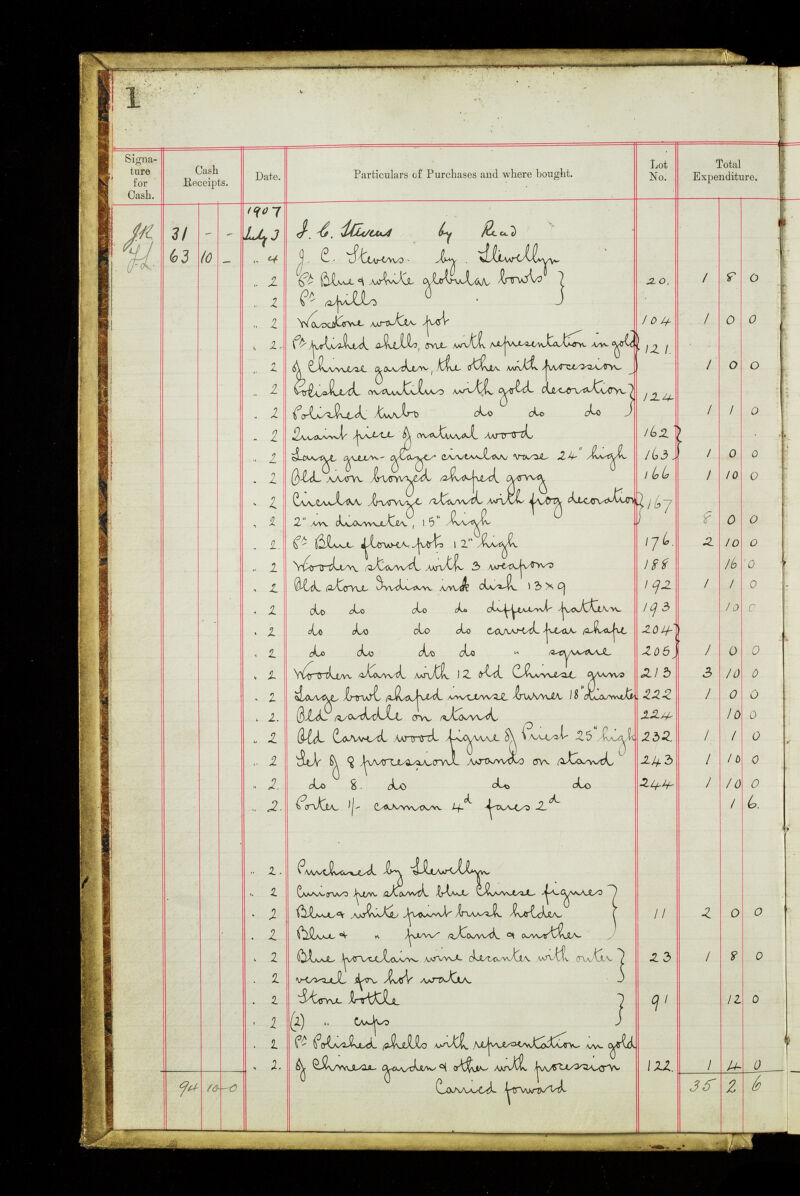 1
Signa-
ture
for
Cash.
Cash
Receipts.
Date.
Particulars of Purchases and where bought.
Lot
No.
Total
Expenditure.
1907
31 - - July 3 J. C. Stevens by Read
63 10 - " 4 J. C. Stevens. by. Llewellyn
" 2 Pr Blue & white globular bowls } 20. 1 8 0
" 2 Pr spills
" 2 Noxastone water pot 104 1 0 0
" 2. Pr polished shells, one with representation in gold } 121.
" 2 of Chinese garden, the other with procession 1 0 0
" 2 Polished nautilus with gold decoration } 124
" 2 Polished turbo do do do 1 1 0
" 2 Quaint piece of natural wood 162 }
" 2 Large green-glaze circular vase 24" high 163 1 0 0
" 2 Old iron bronzed shaped gong 166 1 10 0
" 2 Circular bronze stand with frog decoration } 167
" 2 2" in diameter, 15" high 8 0 0
" 2 Pr Blue flower-pots 12" high 176. 2 10 0
" 2 Wooden stand with 3 weapons 188 16 0
" 2 Old stone Indian ink dish 13 x 9 192 1 1 0
" 2 do do do do different pattern 193 10 0
" 2 do do do do carved pear shape 204 }
" 2 do do do do " square 205 1 0 0
" 2 Wooden stand with 12 old Chinese guns 213 3 10 0
" 2 Large bowl shaped incense burner 18" diameter 222 1 0 0
" 2. Old saddle on stand 224 10 0
" 2 Old Carved wood figure of Priest 25" high 232 1 1 0
" 2 Set of 9 processional wands on stand 243 1 10 0
" 2. do 8. do do do 244 1 10 0
" 2. Porter 1/- carman 4d fares 2d 1 6.
" 2. Purchased by Llewellyn
" 2 Curious pen stand blue Chinese figures }
" 2 Blue & white paint brush holder 11 2 0 0
" 2 Blue & " pen stand & another
" 2 Blue porcelain wine decanter with outer } 23 1 8 0
" 2 vessel for hot water
" 2 Stone bottle } 91 12 0
" 2 (2) " cups
" 2 Pr Polished shells with representation in gold
" 2. of Chinese garden & other with procession 122. 1 4 0
94 10-0 Carried forward 35 2 6